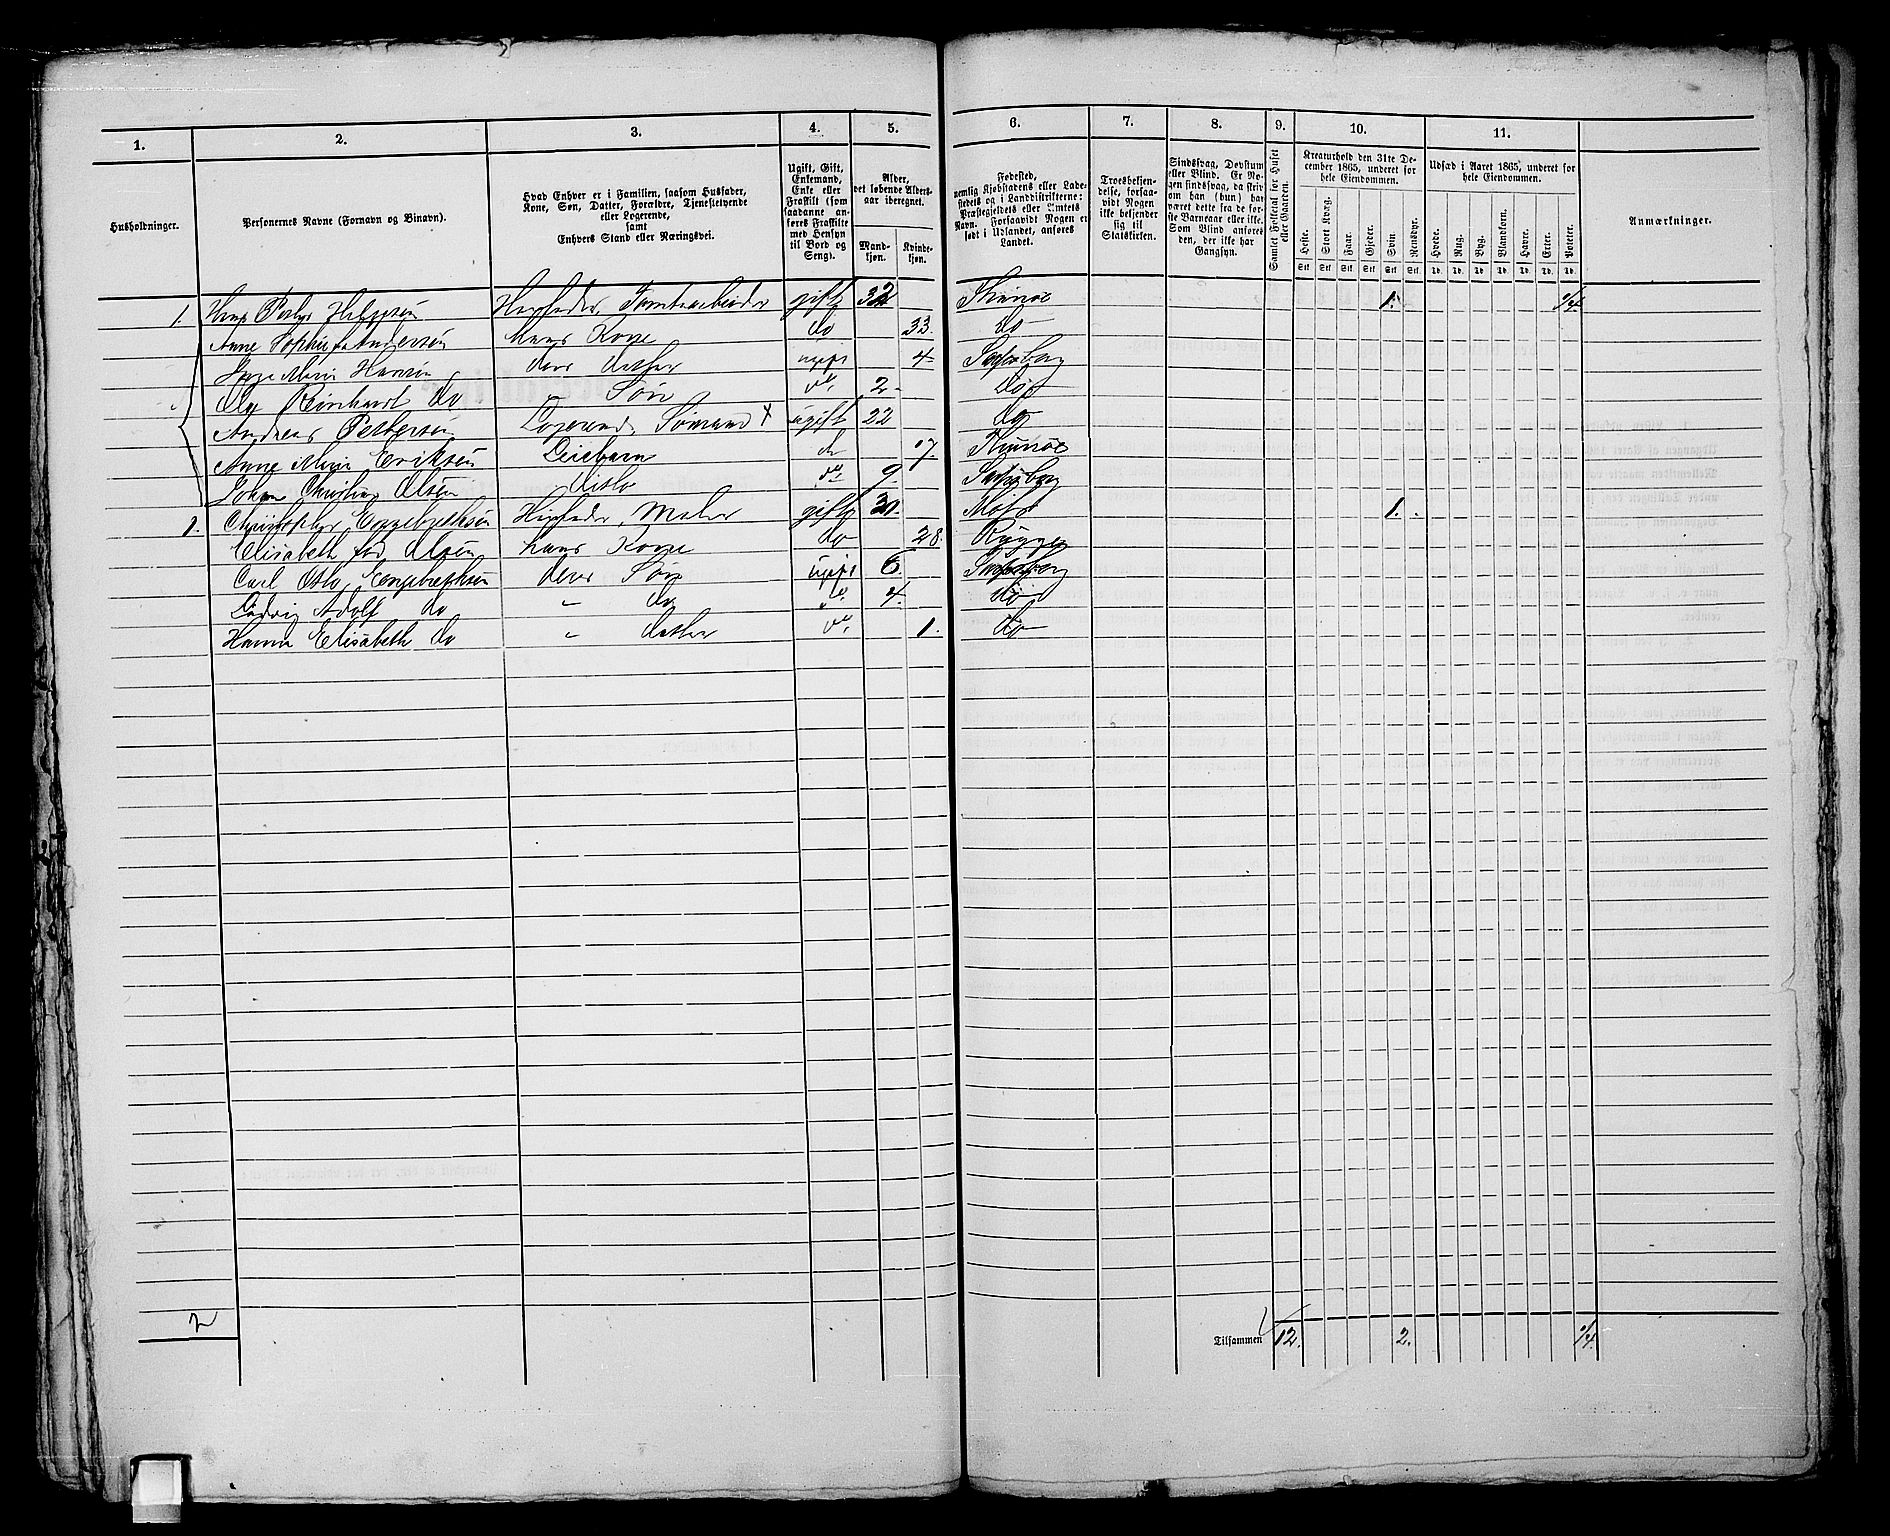 1. 2. 3. 4. 5. 6. 7. 8. 9. 10. 11.
Husholdninger.
Personernes Navne (Fornavn og Binavn).
Hvad Enhver er i Familien, saasom Husfader,
Kone, Søn, Datter, Forældre, Tjenestetyende
eller Logerende,
samt
Enhvers Stand eller Næringsvei.
Ugift, Gift,
Enkemand,
Enke eller
Fraskilt (som
saadanne an-
føres Fraskilte
med Hensyn
til Bord og
Seng).
Alder,
det løbende Alders-
aar iberegnet.
Mand-
kjøn.
Kvinde-
kjøn.
Fødested,
nemlig Kjøbstadens eller Lade-
stedets og i Landdistrikterne:
Præstegjeldets eller Amtets
Navn. Forsaavidt Nogen er
født i Udlandet, anføres
Landet.
Troesbekjen-
delse, forsaa-
vidt Nogen
ikke bekjender
sig til
Statskirken.
Sindssvag, Døvstum
eller Blind. Er No-
gen sindssvag, da skriv
om han (hun) har
været dette fra de før-
ste Barneaar eller ikke.
Som Blind anføres
den, der ikke har
Gangsyn.
Samlet Folketal for Huset
eller Gaarden.
Kreaturhold den 31te De-
cember 1865, underet for
hele Eiendommen.
Heste. Stort Kvæg. Faar. Gjeder. Svin. Rensdyr.
Stk Stk Stk Stk Stk Stk
Udsæd i Aaret 1865, underet for
hele Eiendommen.
Hvede. Rug. Byg. Blandkorn. Havre. Erter. Poteter.
Td. Td. Td. Td. Td. Td. Td.
Anmærkninger.
1. Husfader, gift 32 1. 1/4.
Anne Sophie Andersen Hans Kone do 33. do
Marie Hansen deres datter ugift 4 Sarpsborg
do Søn do. 2 do
Andreas Pettersen Logerende, Sømand x ugift 22 do
Anne Marie Eriksen Leiebarn do 7.
Johan Olsen ditto do 9 Sarpsborg
1. Christopher Engebrethsen Husfader, Maler gift 30. Moss 1.
Elisabeth fød Olsen hans Kone do 28. Rygge
Carl Otto Engebrethsen deres Søn ugift 6. Sarpsborg
Ludvig Adolf do " do do. 4. do
Hanna Elisabeth do " datter do. 1. do
2 Tilsammen 12. 2. 1/4.